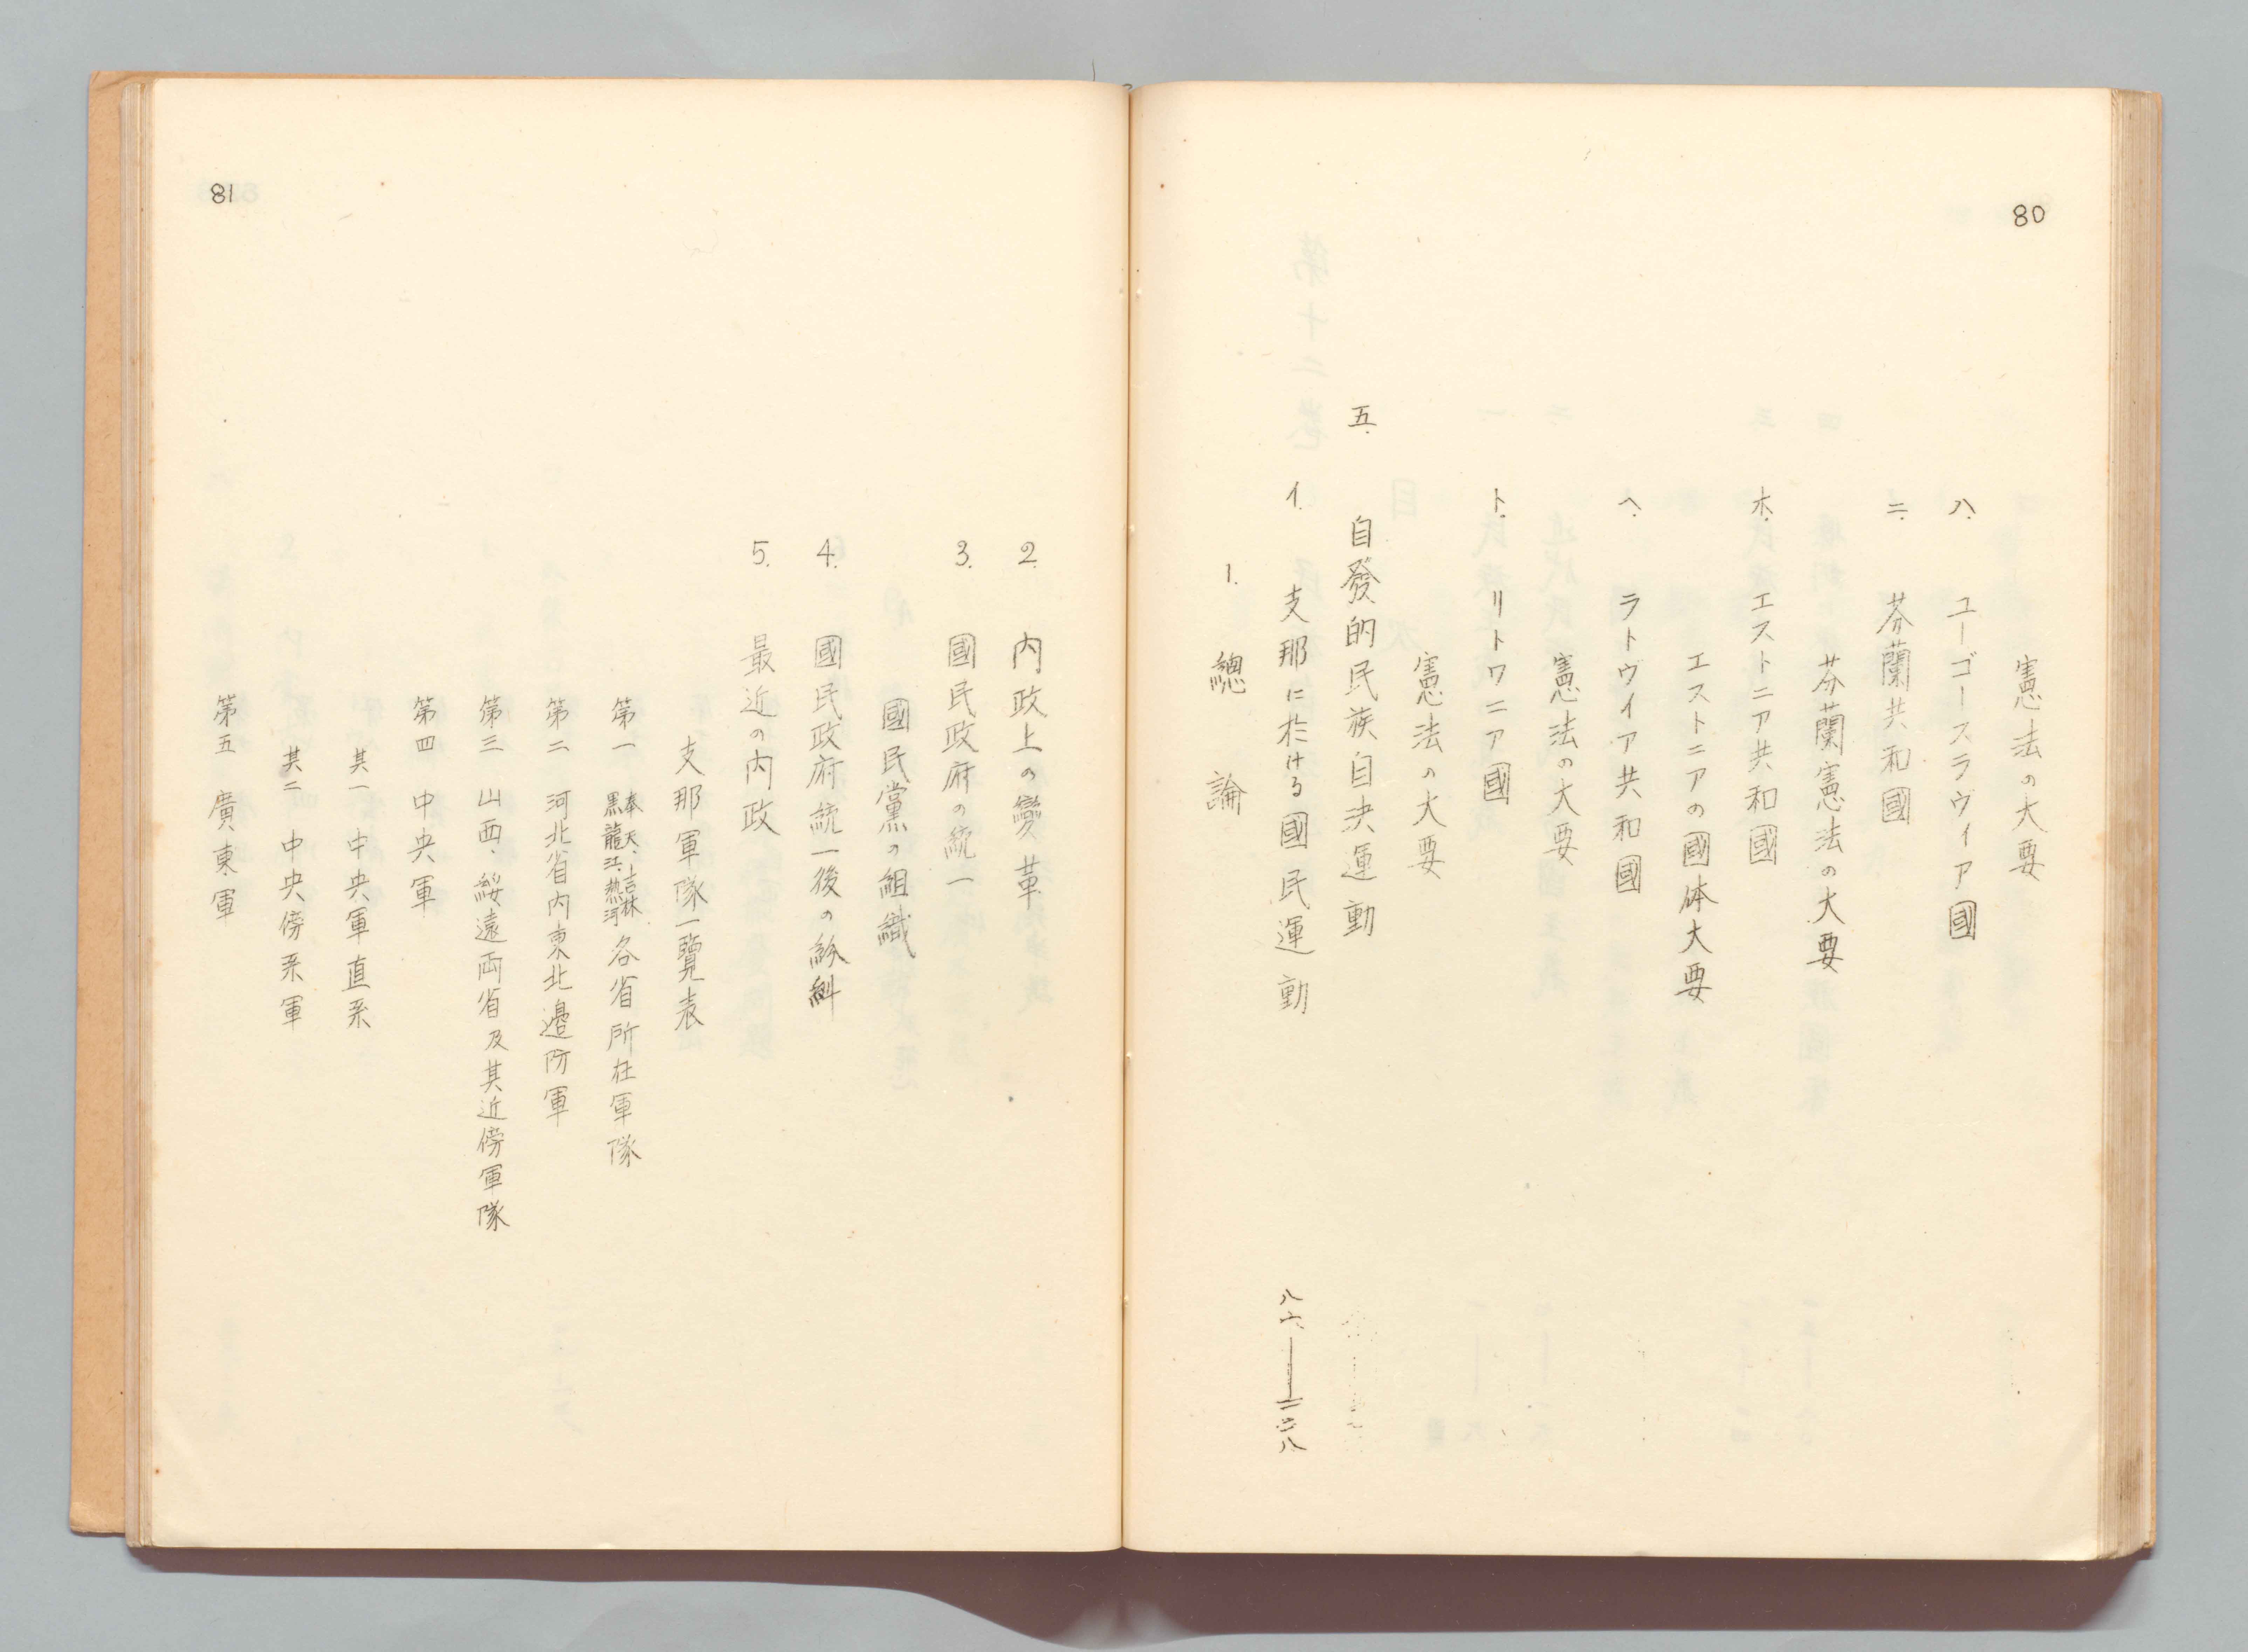 80
憲法の大要
ハ. ユーゴースラヴィア國
ニ. 芬蘭共和國
芬蘭憲法の大要
ホ. エストニア共和國
エストニアの國体大要
ヘ. ラトウイア共和國
憲法の大要
ト. リトワニア國
憲法の大要
五. 自發的民族自決運動
イ. 支那に於ける國民運動 八六――二三八
1. 總論
81
2. 内政上の變革
3. 國民政府の統一
國民黨の組織
4. 國民政府統一後の紛糾
5. 最近の内政
支那軍隊一覽表
第一 奉天、吉林、黒龍江、熱河各省所在軍隊
第二 河北省内東北邊防軍
第三 山西、綏遠両省及其近傍軍隊
第四 中央軍
其一 中央軍直系
其二 中央傍系軍
第五 廣東軍